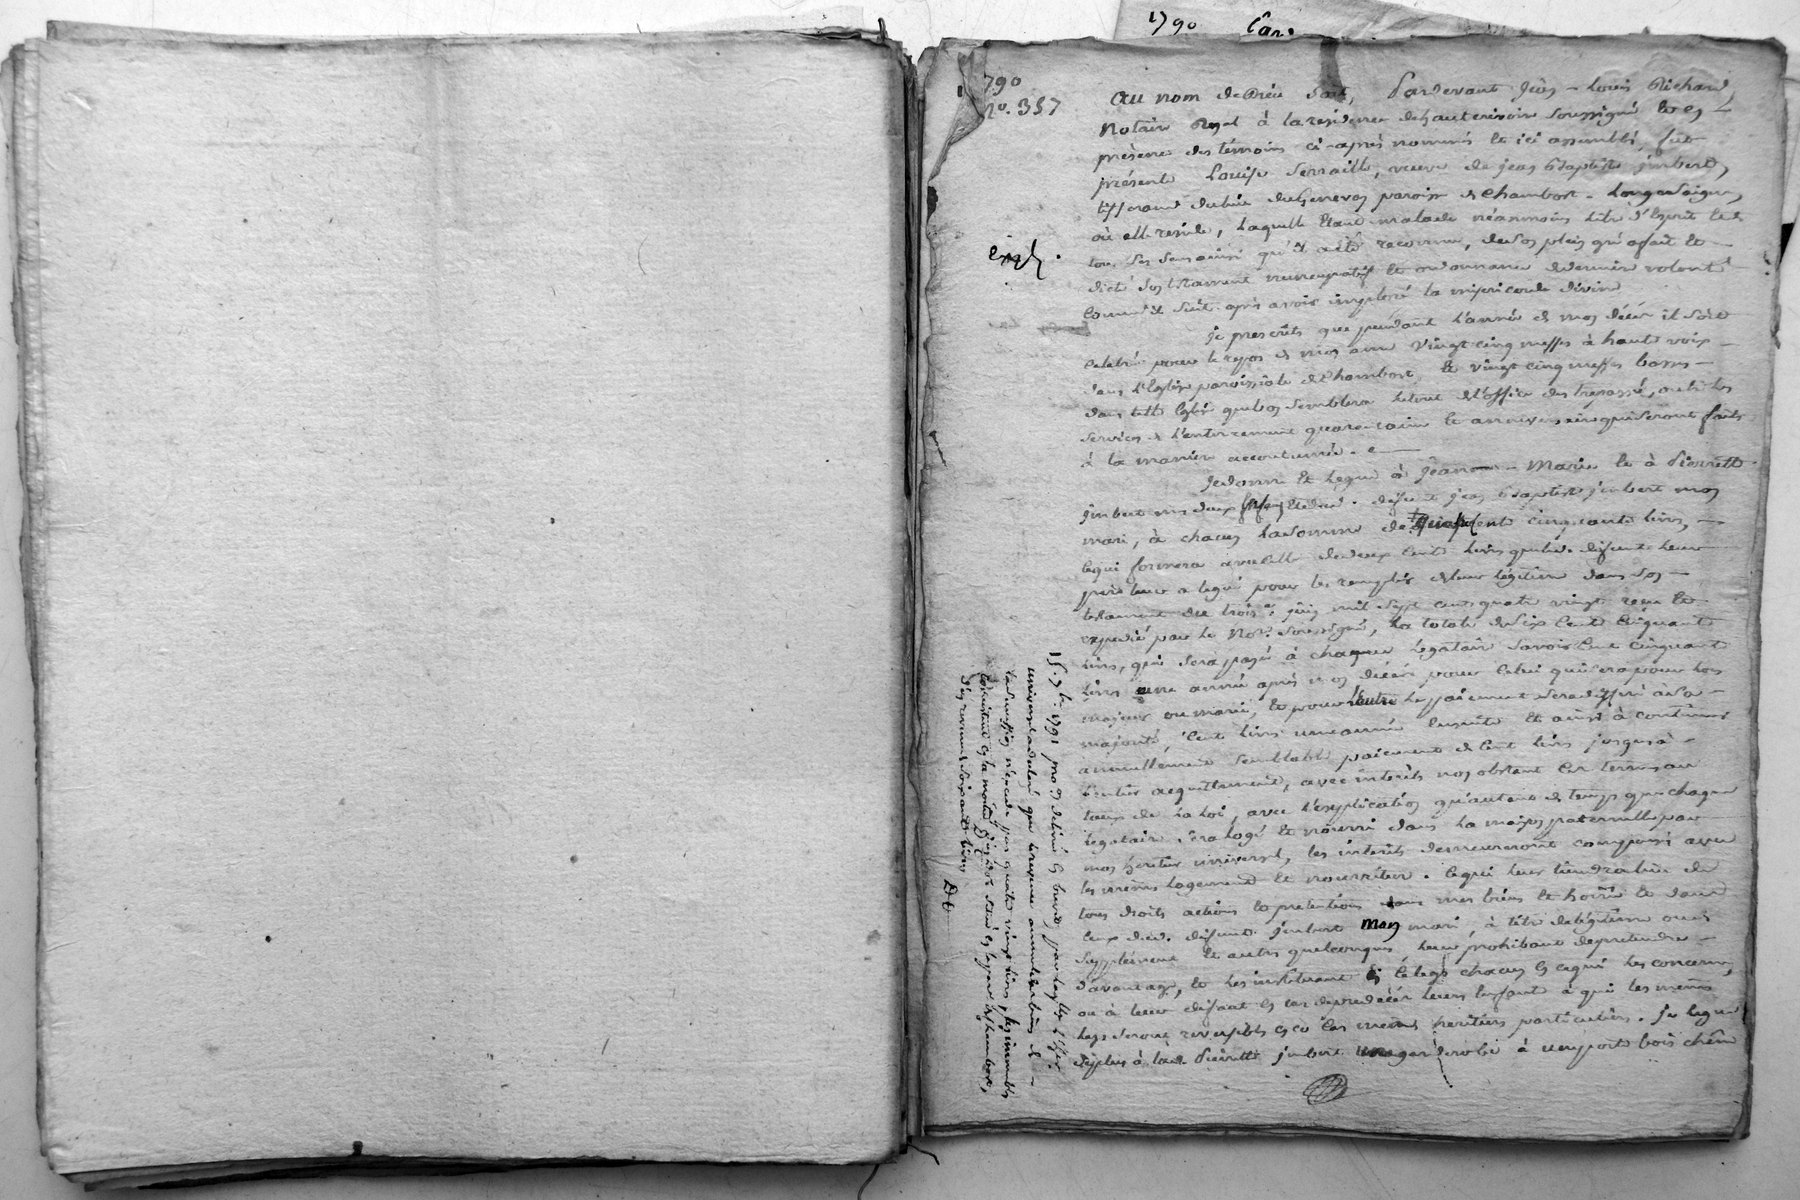 1790 Car.
790
N°. 357
Au nom de Dieu soit, Pardevant Jean-Louis Richard
Notaire Royal à la residence de hauterivoire soussigné et en
présence des témoins ci-après nommés et ici assemblés, fut
présente Louise Serraille, veuve de jean Baptiste jmbert,
tisserand du lieu du Genevay paroisse de Chambost-Longessaigne,
où elle reside, laquelle étant malade néanmoins libre d'Esprit et de
tous ses sens ainsi qu'il a été reconnu, de son plein gré a fait et
dicté son testament nuncupatif et ordonnance de derniere volonté
comme il suit. après avoir imploré la misericorde divine
je prescrits que pendant l'année de mon décès il soit
celebré pour le repos de mon ame vingt cinq messes à haute voix
dans l'Eglise paroissiale de Chambost, et vingt cinq messes basses
dans telle Eglise que bon semblera le tout de l'office des trepassés, outre les
services de l'enterrement quarantaine et anniversaire qui seront faits
à la maniere accoutumée.
Je donne et legue à Jeanne-Marie et à Pierrette
jmbert mes deux filles et dud. défunt jean Baptiste jmbert mon
mari, à chacune la somme de cent cinquante livres,
ce qui formera avec celle de deux cent livres que led. défunt leur
père leur a legué pour les remplir de leur légitime dans son
testament du trois juin mil sept cent quatre vingt reçu et
expedié par le Not. soussigné, la totale de six cent cinquante
livres, qui sera payée à chaque légataire savoir cent cinquante
livres une année après mon décès pour celui qui sera pour lors
majeur ou marié, et pour l'autre le paiement sera differé à sa
majorité, cent livres une année ensuite et ainsi à continuer
annuellement semblable paiement de cent livres jusques à
l'entier acquittement, avec interêts nonobstant les termes au
taux de la loi, avec l'explication qu'autant de temps que chaque
légataire sera logé et nourri dans la maison paternelle par
mon heritier universel, les interêts demeureront compensés avec
les mêmes logement et nourriture. ce qui leur tiendra lieu de
tous droits actions et pretentions dans mes biens et hoirie et dans
ceux dud. défunt jmbert mon mari, à titre de légitime ou de
supplément et autres quelconques leur prohibant de pretendre
davantage, et les instituant en ce legs chacun en ce qui les concerne,
ou à leur défaut en cas de predécès leurs enfants à qui les mêmes
legs seront reversibles en ce les mêmes heritiers particuliers. Je legue
de plus à lad. Pierrette jmbert une garderobe à une porte bois chêne
15. 7bre 1791
universel a declaré que le revenu annuel des biens de
la succession n'excede pas quatre vingt livres, les immeubles